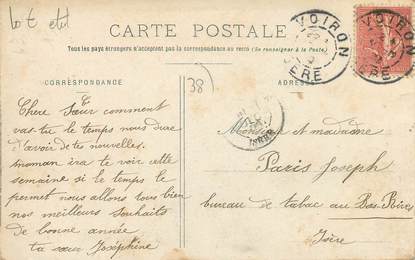 CARTE POSTALE
Tous les pays étrangers n'acceptent pas la correspondance au recto (Se renseigner à la Poste)
CORRESPONDANCE
ADRESSE
38
VOIRON
ISÈRE
VOIRON
ISÈRE
Chère Sœur comment
vas-tu le temps nous dure
d'avoir de tes nouvelles.
maman ira te voir cette
semaine si le temps le
permet nous allons tous bien
nos meilleurs souhaits
de bonne année
ta sœur Joséphine
Monsieur et madame
Paris Joseph
bureau de tabac au Bas Rives
Isère